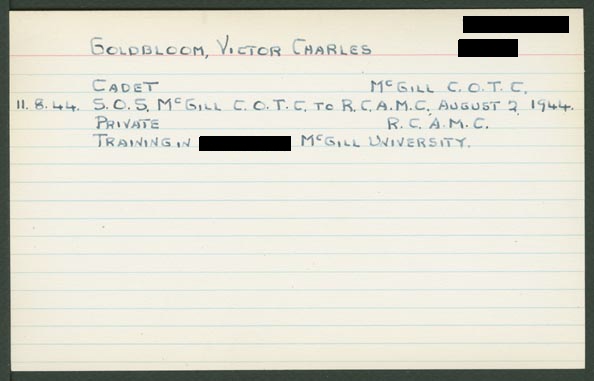 GOLDBLOOM, VICTOR CHARLES
CADET McGILL C.O.T.C.
11.8.44. S.O.S. McGILL C.O.T.C. TO R.C.A.M.C. AUGUST 2, 1944.
PRIVATE R.C.A.M.C.
TRAINING IN McGILL UNIVERSITY.